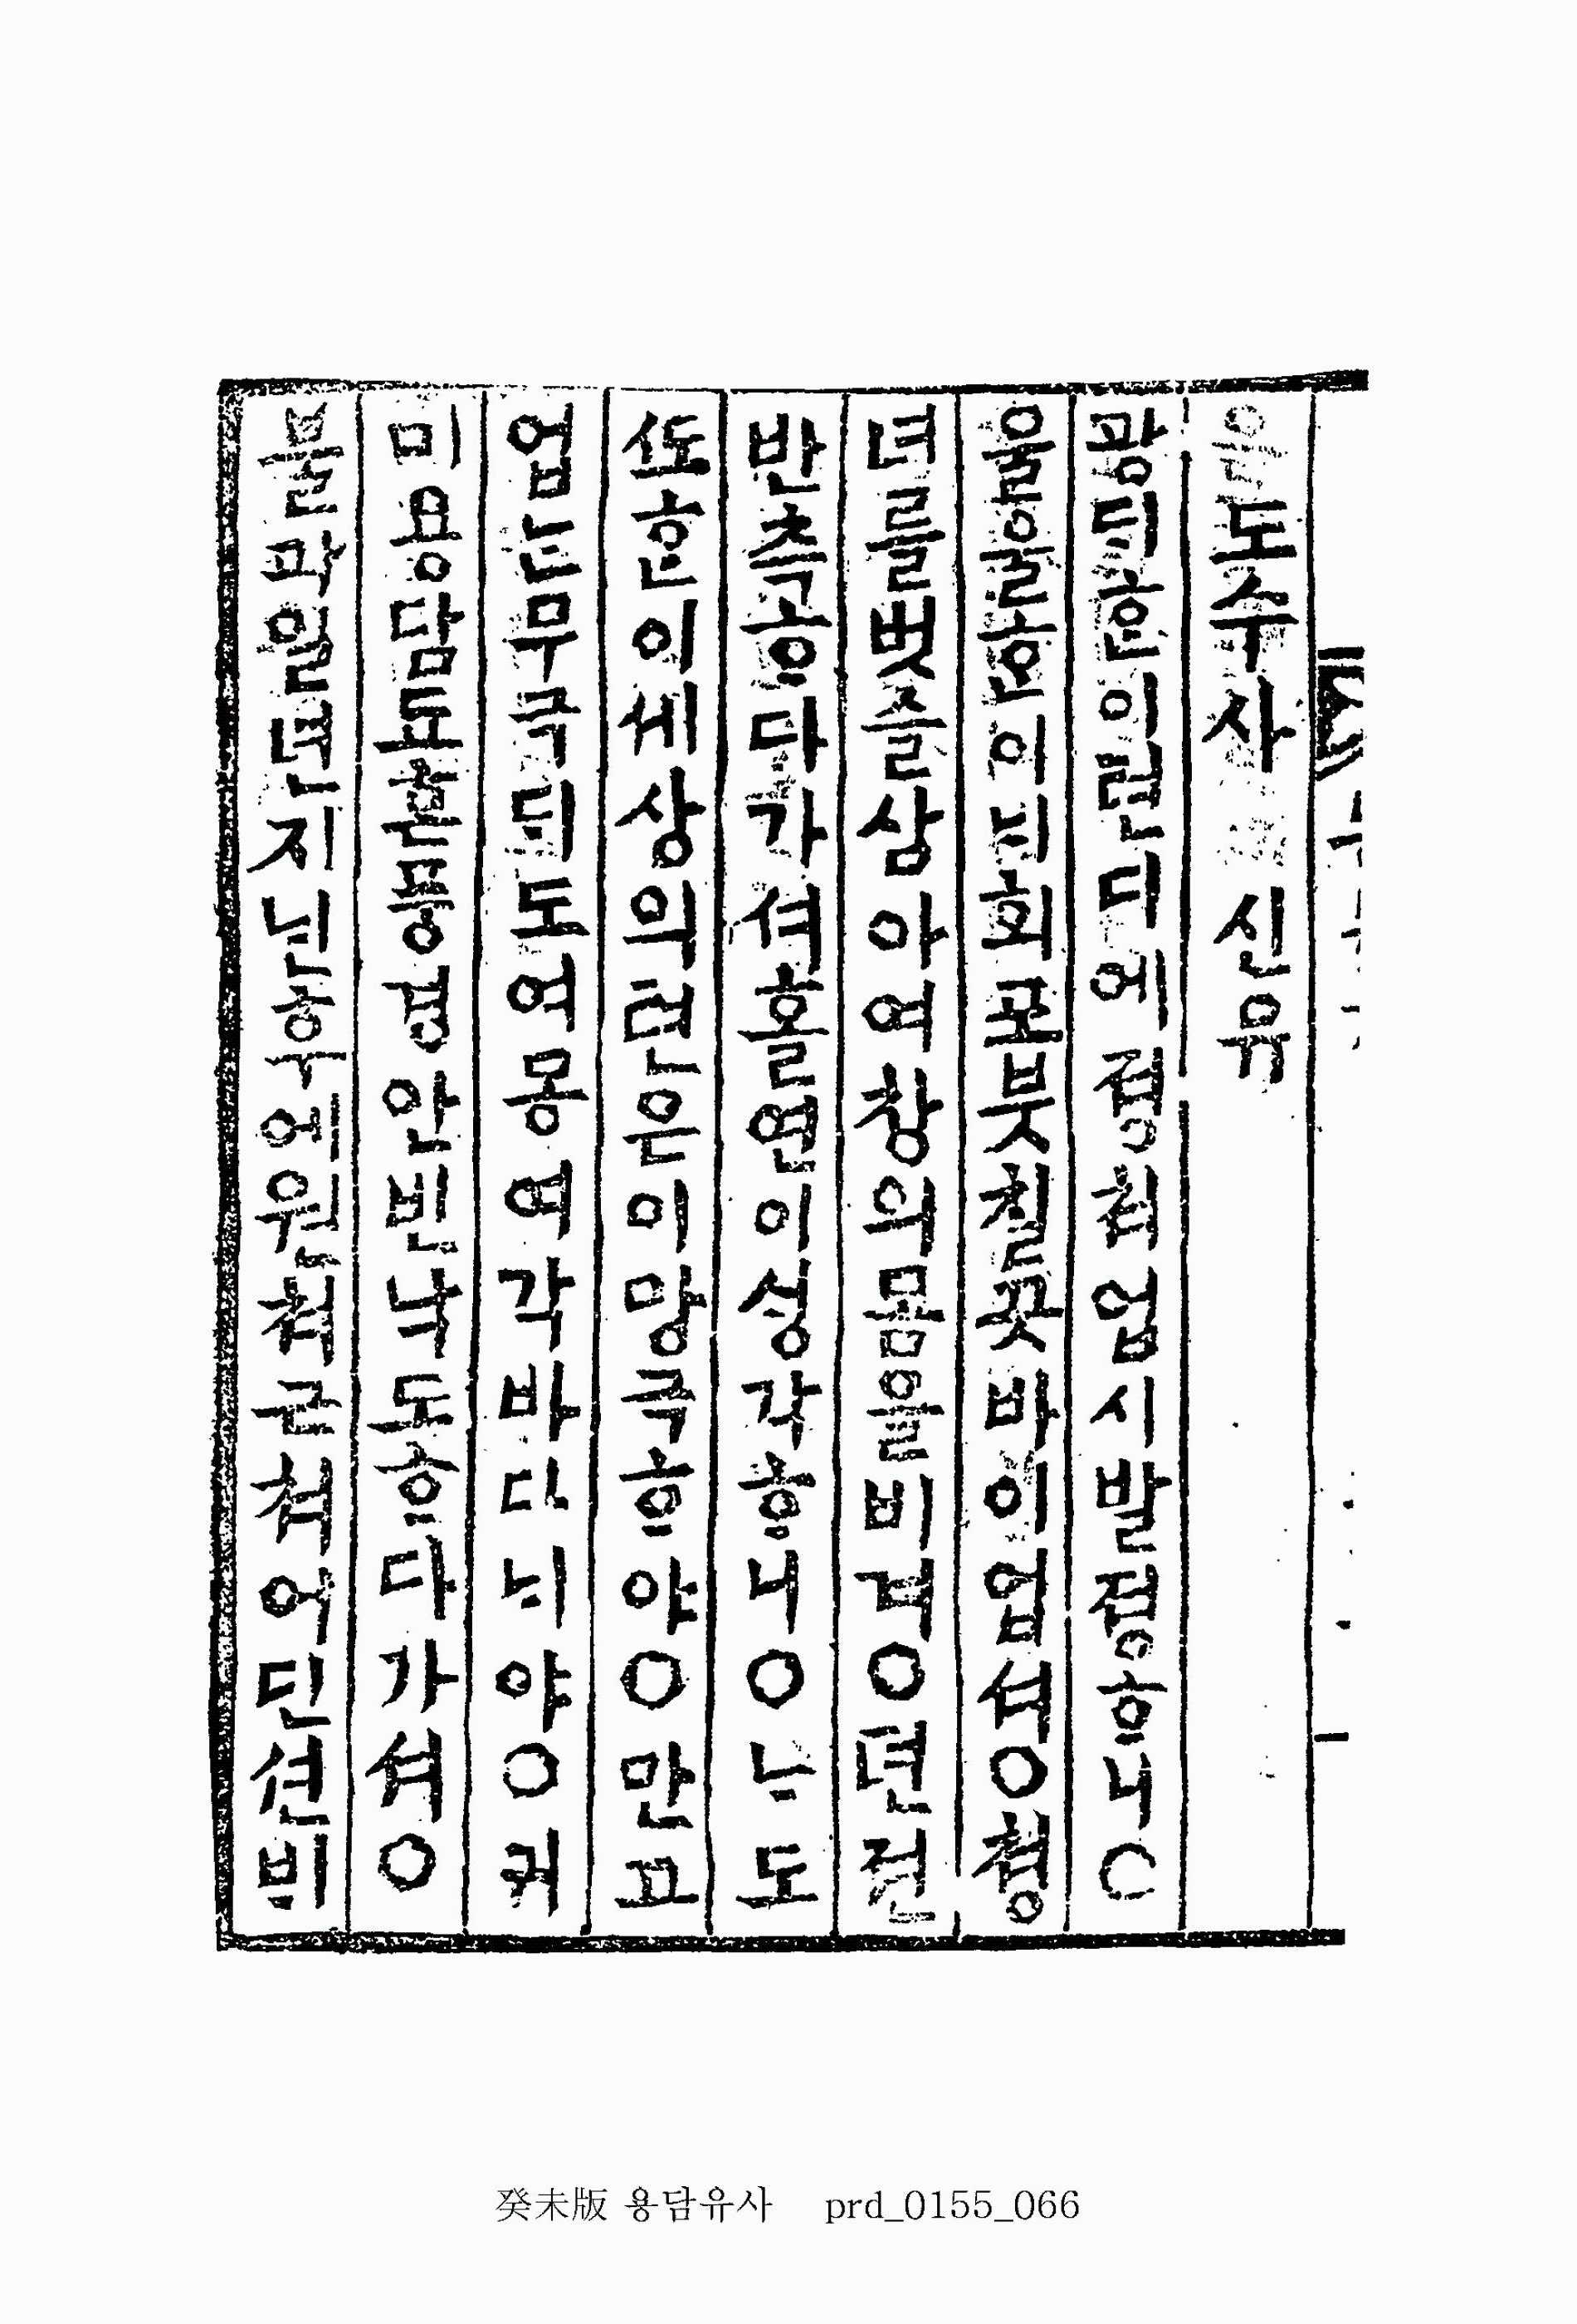 도수사 신유
광ᄃᆡᄒᆞᆫ이텬디예졍쳐업시발졍ᄒᆞ니○
울울ᄒᆞᆫ이ᄂᆡ회포붓칠곳바이업셔○쳥
녀를벗슬삼아여창의몸을비겨○뎐젼
반측ᄒᆞ다가셔홀연이ᄉᆡᆼ각ᄒᆞ니○ᄂᆞ도
ᄯᅩᄒᆞᆫ이세상의텬은이망극ᄒᆞ야○만고
업ᄂᆞᆫ무극ᄃᆡ도여몽여각바다ᄂᆡ야○귀
미용담됴흔풍경안빈낙도ᄒᆞ다가셔○
불과일년지ᄂᆡᆫ후에원쳐근쳐어딘션ᄇᆡ
癸未版 용담유사 prd_0155_066